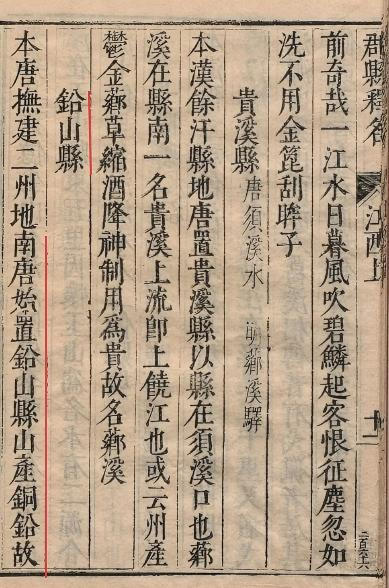 郡縣釋名
江西上
十一
二百六十六
前奇哉一江水日暮風吹碧鱗起客恨征塵忽如
洗不用金篦刮眸子
貴溪縣 唐須溪水 明薌溪驛
本漢餘汗縣地唐置貴溪縣以縣在須溪口也薌
溪在縣南一名貴溪上流卽上饒江也或云州產
鬱金薌草縮酒降神制用爲貴故名薌溪
鉛山縣
本唐撫建二州地南唐始置鉛山縣山產銅鉛故